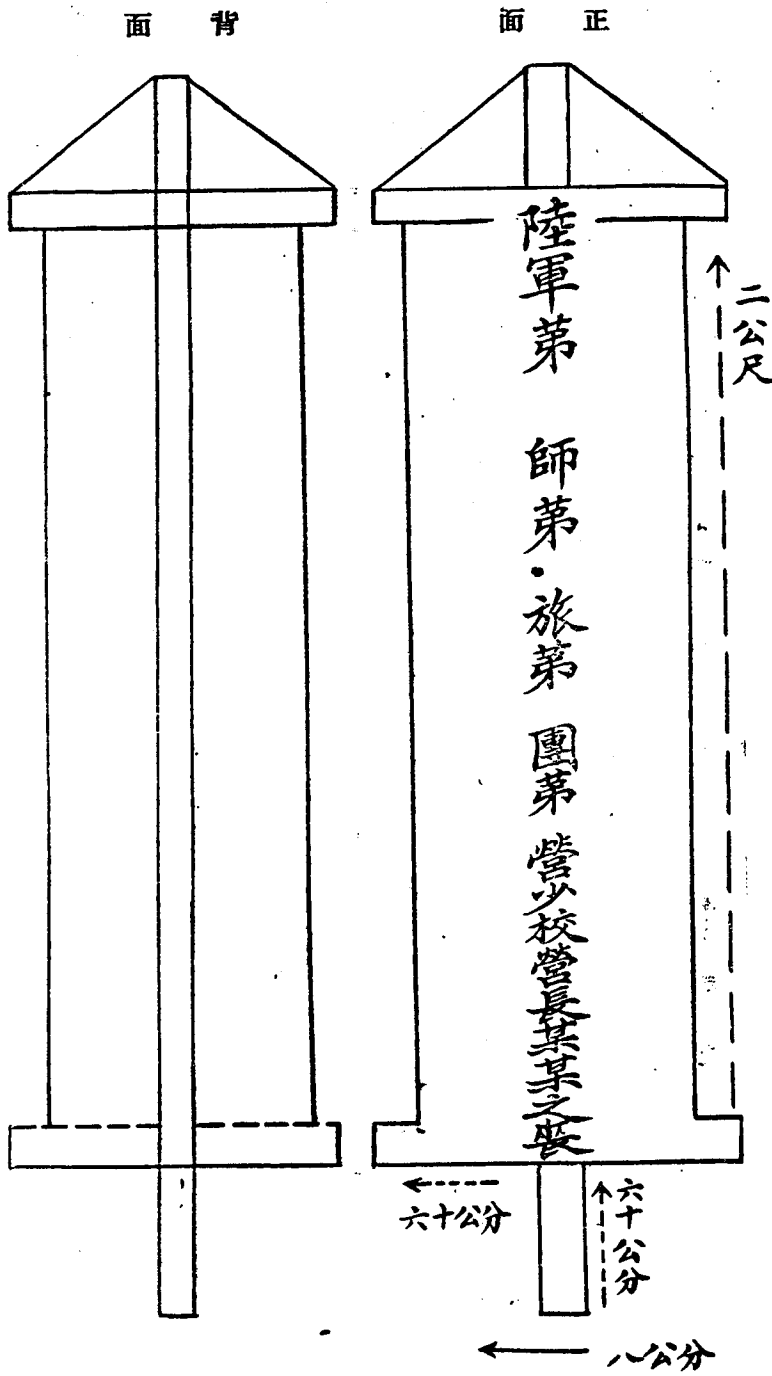 正面
陸軍第 師第 旅第 團第 營少校營長某某之喪
二公尺
六十公分
六十公分
八公分
背面